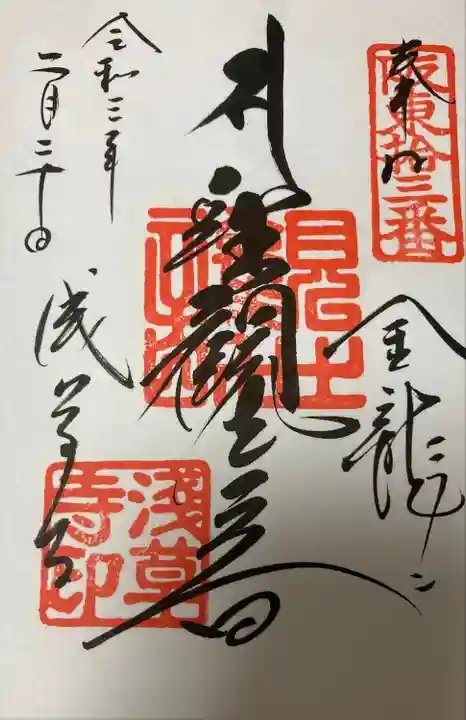 奉拝
坂東拾三番
金龍山
聖観世音
浅草寺
淺草寺印
令和三年
二月二十日